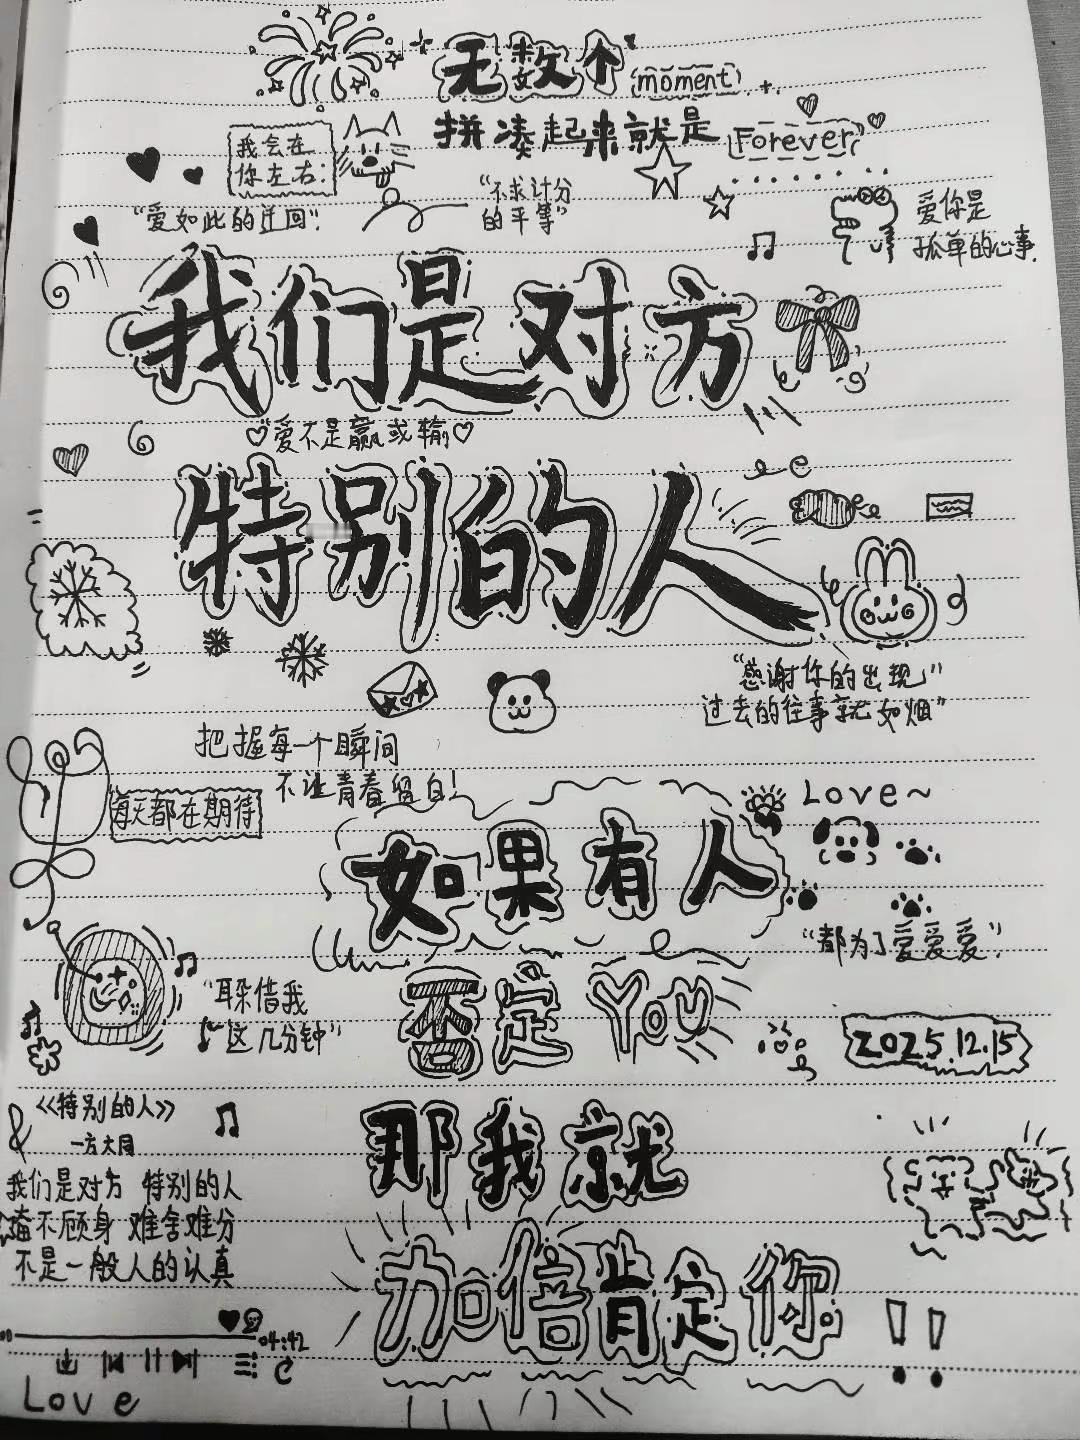 无数个 moment
拼凑起来就是 Forever
我会在
你左右.
"爱如此的迂回".
"不求计分
的平等"
爱你是
孤单的心事.
我们是对方
"爱不是赢或输
特别的人
"感谢你的出现"
过去的往事就如烟"
把握每一个瞬间
不让青春留白!
每天都在期待
Love~
如果有人
"都为了爱爱爱".
否定You
"耳朵借我
这几分钟"
2025.12.15
《特别的人》
一方大同
那我就
我们是对方 特别的人
奋不顾身 难舍难分
不是一般人的认真
加倍肯定你!!
04:42
Love